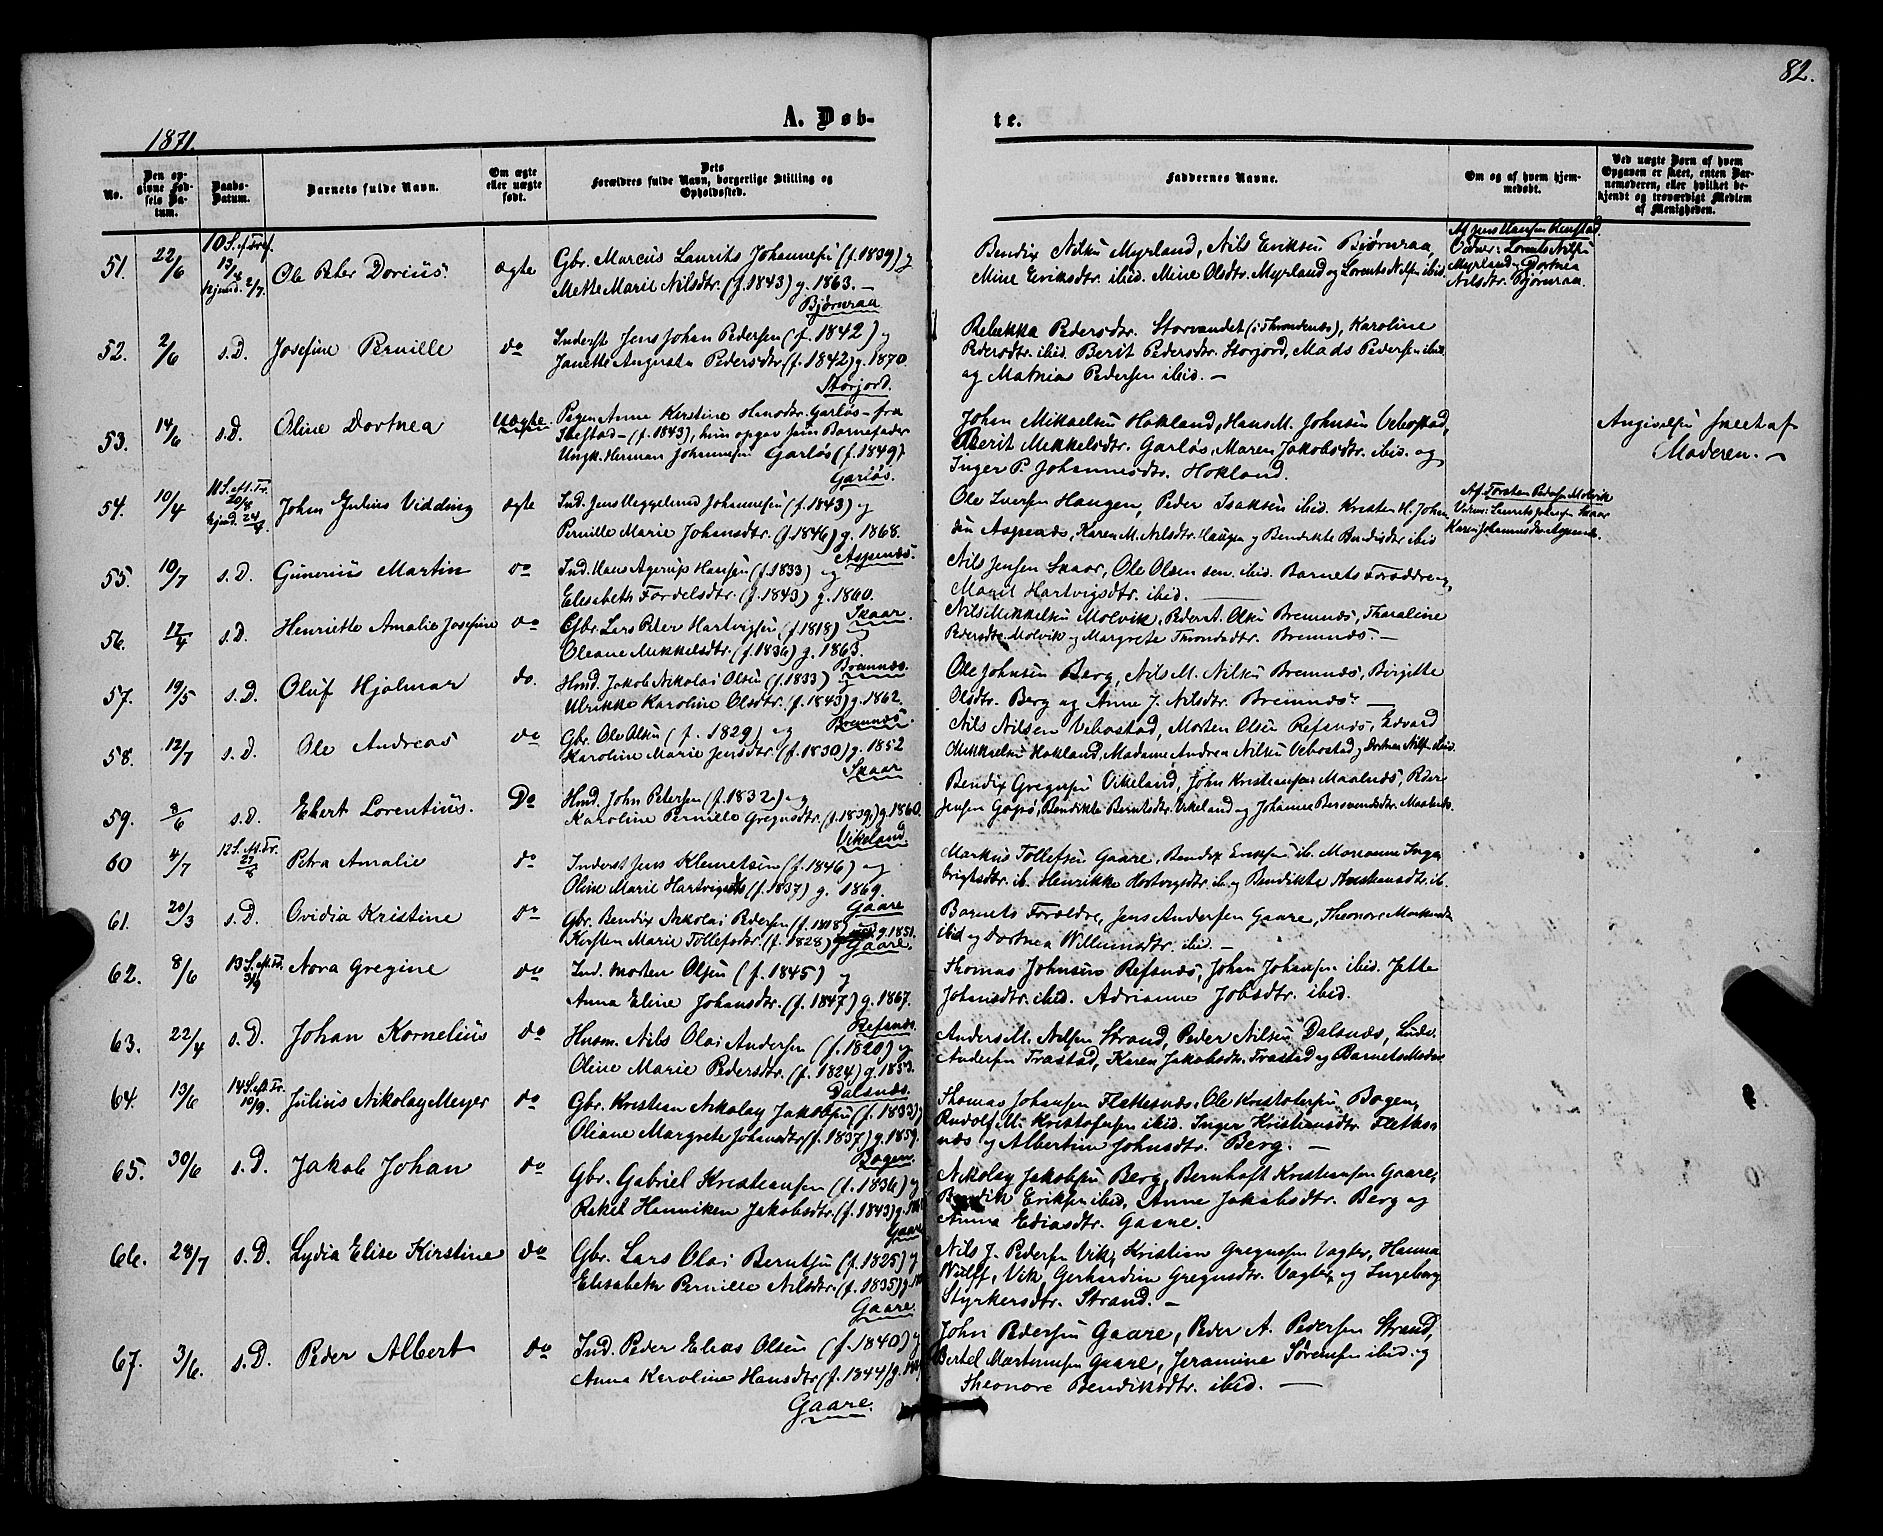 82.
1871.
A. Døb-
te.
No.
Den op-
givne Fød-
sels Da-
tum.
Daabs-
Datum.
Barnets fulde Navn.
Om ægte
eller uægte
født.
Dets
Forældres fulde Navn, borgerlige Stilling og
Opholdssted.
Faddernes Navne.
Om og af hvem hjem-
medøbt.
Ved uægte Børn af hvem
Opgaven er skeet, enten Bar-
nemoderen, eller hvilket be-
kjendt og troværdigt Medlem
af Menigheden.
51. 22/6 10 S. ef. Tref. 13/4 hjemd. 2/7. Ole Peter Dorius. ægte
Gbr. Marcus Laurits Johannesen (f. 1839) og
Mette Marie Nilsdtr. (f. 1843) g. 1863. —
Bjørnraa
Bendix Nilsen Myrland, Nils Eriksen Bjørnraa,
Mine Eriksdtr. ibid. Mine Olsdtr. Myrland og Lorents Nilsen ibid.
Af Jens Hansen
Vidner: Lorents Nilsen
Myrland og Dortnea
Nilsdtr. Bjørnraa.
52. 2/6 s. D. Josefine Pernille do
Inderst Jens Johan Pedersen (f. 1842) og
Janette Augusta Pedersdtr. (f. 1842) g. 1870.
Storjord.
Rebekka Pedersdtr. Storvandet (i Throndenes), Karoline
Pedersdtr. ibid. Berit Pedersdtr. Storjord, Mads Pedersen ibid.
og Mathias Pedersen ibid. —
53. 14/6 s. D. Oline Dortnea Uægte.
Pigen Anne Kirstine Hansdtr. Garløs — fra
Ibestad — (f. 1843), hun opgav som Barnefader
Ungk. Herman Johannesen Garløs (f. 1849)
Garløs.
Johan Mikaelsen Hokland, Hans M. Johnsen Vebostad,
Berit Mekkelsdtr. Garløs, Maren Jakobsdtr. ibid. og
Inger P. Johannesdtr. Hokland.
Angivelsen skeet af
Moderen. —
54. 10/4 11 S. ef. Tr. 20/8 hjemd. 24/4 John Julius Vidding ægte
Ind. Jens Meggelund Johannesen (f. 1843) og
Pernille Marie Johansdtr. (f. 1846) g. 1868.
Aspenes.
Ole Iversen Haugen, Peder Isaksen ibid. Kristen H. Johan-
sen Aspenes, Karen M. Nilsdtr. Haugen og Bendikte Bendixdtr. ibid
Af Torsten Pedersen Molvik
Vidner: Laurits Johansen Skaar
Karen Johannesdtr Aspenes.
55. 10/7 s. D. Gunerius Martin do
Ind. Hans Agerup Hansen (f. 1833) og
Elisabeth Fordelsdtr. (f. 1843) g. 1860.
Skaar.
Nils Jensen Skaar, Ole Olsen sen. ibid. Barnets Forældre og
Marit Hartvigsdtr. ibid. —
56. 17/4 s. D. Henriette Amalie Josefine do
Gbr. Lars Peter Hartvigsen (f. 1818) og
Oleane Mekkelsdtr. (f. 1836) g. 1863.
Bremnes.
Nils Mikkelsen Molvik, Peder A. Olsen Bremnes, Tharaline
Pedersdtr. Molvik og Margrete Trondsdtr. Bremnes. —
57. 19/5 s. D. Oluf Hjalmar do.
Hmd. Jakob Nikolai Olsen (f. 1833) og
Ulrikke Karoline Olsdtr. (f. 1843) g. 1862.
Bremnes.
Ole Johnsen Berg, Nils M. Nilsen Bremnes, Birgitte
Olsdtr. Berg og Anne J. Nilsdtr. Bremnes. —
58. 12/7 s. D. Ole Andreas do
Gbr. Ole Olsen (f. 1829) og
Karoline Marie Jensdtr. (f. 1830) g. 1852
Skaar
Nils Nilsen Vebostad, Morten Olsen Refsnes, Edvard
Mekkelsen Hokland, Madame Andrea Nilsen Vebostad og Dortnea Nilsen ibid.
59. 8/6 s. D. Ebert Lorentius. Do
Hmd. John Petersen (f. 1832) og
Karoline Pernille Gregusdtr. (f. 1839) g. 1860.
Vikeland.
Bendix Gregusen Vikeland, John Kristiansen Maalnes, Peder
Jensen Gapø, Bendikte Berntsdtr. Vikeland og Johanna Bersvendsdtr. Maalnes.
60 4/7 12 S. ef. Tr. 27/8 Petra Amalie do
Inderst Jens Klemetsen (f. 1846) og
Oline Marie Hartvigsdtr (f. 1837) g. 1869.
Gaare
Markus Tollefsen Gaare, Bendix Eriksen ib. Marianne Inge-
brigtsdtr. ib. Henrikke Hartvigsdtr. ib. og Bendikte Kristiansdtr. ib.
61. 20/3 s. D. Ovidia Kristine do
Gbr. Bendix Nikolai Pedersen (f. 1818) og
Kirsten Marie Tollefsdtr. (f. 1828) g. 1851.
Gaare.
Barnets Forældre, Jens Andersen Gaare, Theonore Markusdtr
ibid og Dortnea Willumsdtr. ibid. —
62. 8/6 13 S. ef. Tr. 3/9 Nora Gregine do
Ind. Morten Olsen (f. 1845) og
Anna Eline Johansdtr. (f. 1847) g. 1867.
Refsnes.
Thomas Johnsen Refsnes, Johan Johansen ibid. Jette
Johansdtr. ibid. Adrianne Jobsdtr. ibid.
63. 22/4 s. D. Johan Kornelius do
Husm. Nils Olai Andersen (f. 1820) og
Oline Marie Pedersdtr. (f. 1824) g. 1853.
Dalsnes.
Anders M. Nilsen Strand, Peder Nilsen Dalsnes, Ludv.
Andersen Trastad, Karen Jakobsdtr. Trastad og Barnets Moder
64. 13/6 14 S. ef. Tr. 10/9. Julius Nikolay Meyer do
Gbr. Kristian Nikolay Jakobsen (f. 1833)
Oliane Margrete Johansdtr (f. 1837) g. 1859.
Bogen.
Thomas Johansen Flattenes, Ole Kristofersen Bogen,
Rudolf M. Kristofersen ibid. Inger Kristiansdtr. Flette-
nes og Albertine Johnsdtr. Berg. —
65. 30/6 s. D. Jakob Johan do
Gbr. Gabriel Kristiansen (f. 1836) og
Rakel Hanniken Jakobsdtr. (f. 1843) g.
Gaare
Nikolay Jakobsen Berg, Bernhoft Kristiansen Gaare,
Bendik Eriksen ibid, Anne Jakobsdtr. Berg og
Anna Ediasdtr. Gaare.
66. 28/7 s. D. Lydia Elise Kirstine do
Gbr. Lars Olai Berntsen (f. 1825) og
Elisabeth Pernille Nilsdtr. (f. 1835) g.
Gaare.
Nils J. Pedersen Vik, Kristian Gregusen Vagter, Hanna
Wulff, Vik, Gerhardine Gregusdtr. Vagter, og Ingeborg
Styrkersdtr. Strand. —
67. 3/6. s. D. Peder Albert do
Ind. Peder Elias Olsen (f. 1840) og
Anna Karoline Hansdtr (f. 1844) g.
Gaare.
John Pedersen Gaare, Peder A. Pedersen Strand,
Bertel Martinusen Gaare, Jeramine Sørensen ibid. og
Theonore Bendiksdtr. ibid. —